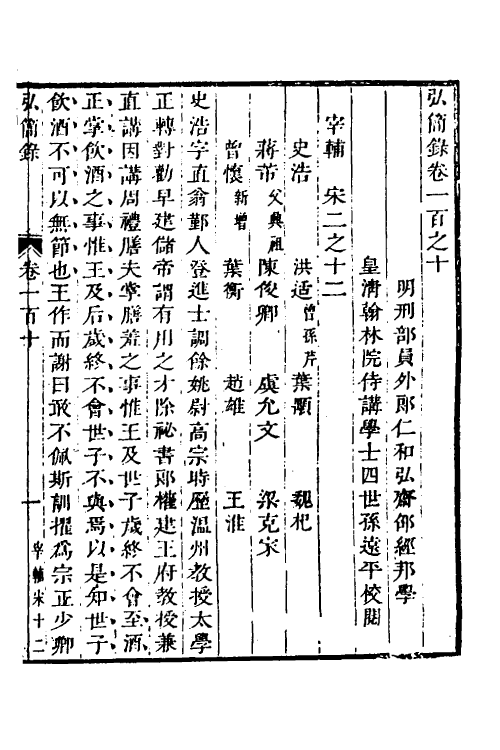 弘簡錄卷一百之十
明刑部員外郎仁和弘齋邵經邦學
皇清翰林院侍講學士四世孫遠平校閱
宰輔 宋二之十二
史浩 洪适曾孫芹 葉顒 魏杞
蔣芾父與祖 陳俊卿 虞允文 梁克家
曾懷新增 葉衡 趙雄 王淮
史浩字直翁鄞人登進士調餘姚尉高宗時歷溫州教授太學
正轉對勸早建儲帝謂有用之才除祕書郎權建王府教授兼
直講因講周禮膳夫掌膳羞之事惟王及世子歲終不會至酒
正掌飲酒之事惟王及后歲終不會世子不與焉以是知世子
飲酒不可以無節也王作而謝曰敢不佩斯訓擢爲宗正少卿
弘簡錄 卷一百十 一 宰輔宋十二